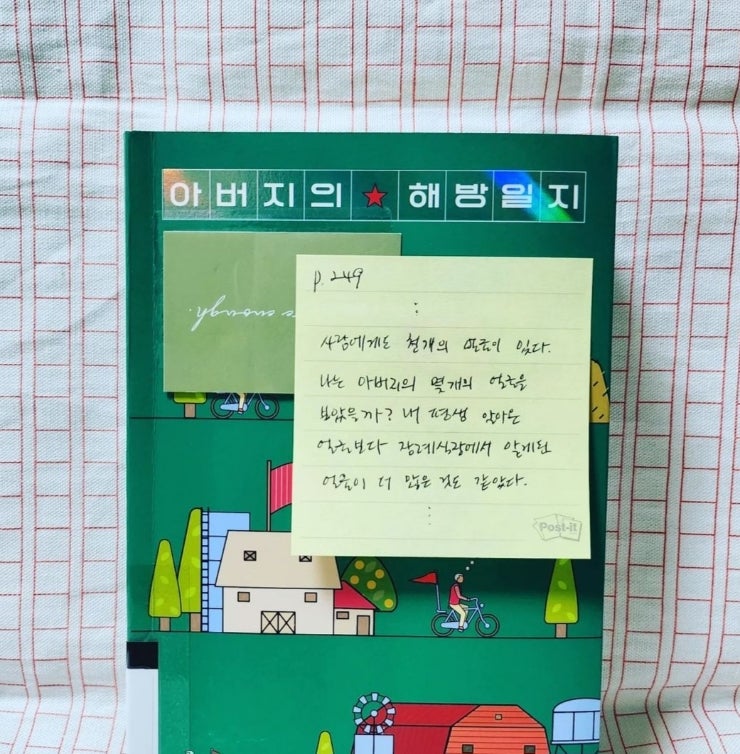 아버지의★해방일지
enough.
p. 249
:
사람에게도 천개의 얼굴이 있다.
나는 아버지의 몇개의 얼굴을
보았을까? 내 평생 알아온
얼굴보다 장례식장에서 알게된
얼굴이 더 많은 것도 같았다.
:
Post-it